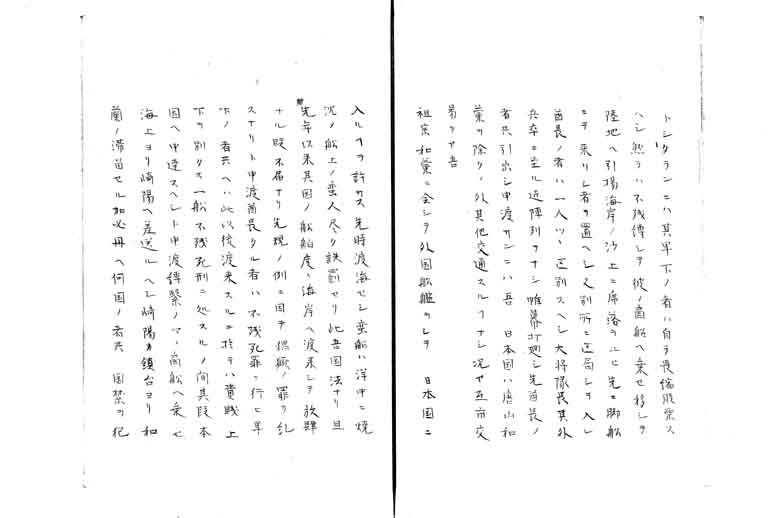 トシクランニハ其卒下ノ者ハ自ラ畏縮服衆ス
ヘシ然ラハ不残縛シテ彼ノ商船ヘ乗セ移シテ
陸地ヘ引揚海岸ノ沙上ニ席落ラニヒ先ニ脚船
ニテ来リシ者ヲ置ヘシ又別所ニ区局シヲ入レ
酋長ノ者ハ一人ツヽ区別スヘシ大将隊長其外
兵卒ニ至ル迄陣列ヲナシ帷幕打廻シ先酋長ノ
者共引出シ申渡サンニハ吾 日本国ハ唐山和
蘭ヲ除クノ外其他交通スルヿナシ況ヤ互市交
易ヲヤ吾
祖宗和蘭ニ会シテ外国船艦ノシテ 日本国ニ
入ルヿヲ許サス先時渡海セシ蛮船ハ洋中ニ焼
沈ノ船上ノ蛮人尽ク誅罰セリ此吾国法ナリ且
先年以来其国ノ船舶度々海岸ヘ渡来シテ放肆
ナル段不届ナリ先規ノ例ニ因テ俱厥ノ罪ヲ糺
スナリト申渡酋長タル者ハ不残死罪ニ行ヒ卒
下ノ者共ヘハ此以後渡来スルニ於テハ貴賤上
下ヲ別タス一船不残死刑ニ処スルノ間其段本
国ヘ申達スヘシト申渡縛繋ノマヽ商船ヘ乗セ
海上ヨリ崎陽ヘ差送ルヘシ崎陽ヵ鎮台ヨリ和
蘭ノ滞留セル加必丹ヘ何国ノ者共 国禁ヲ犯